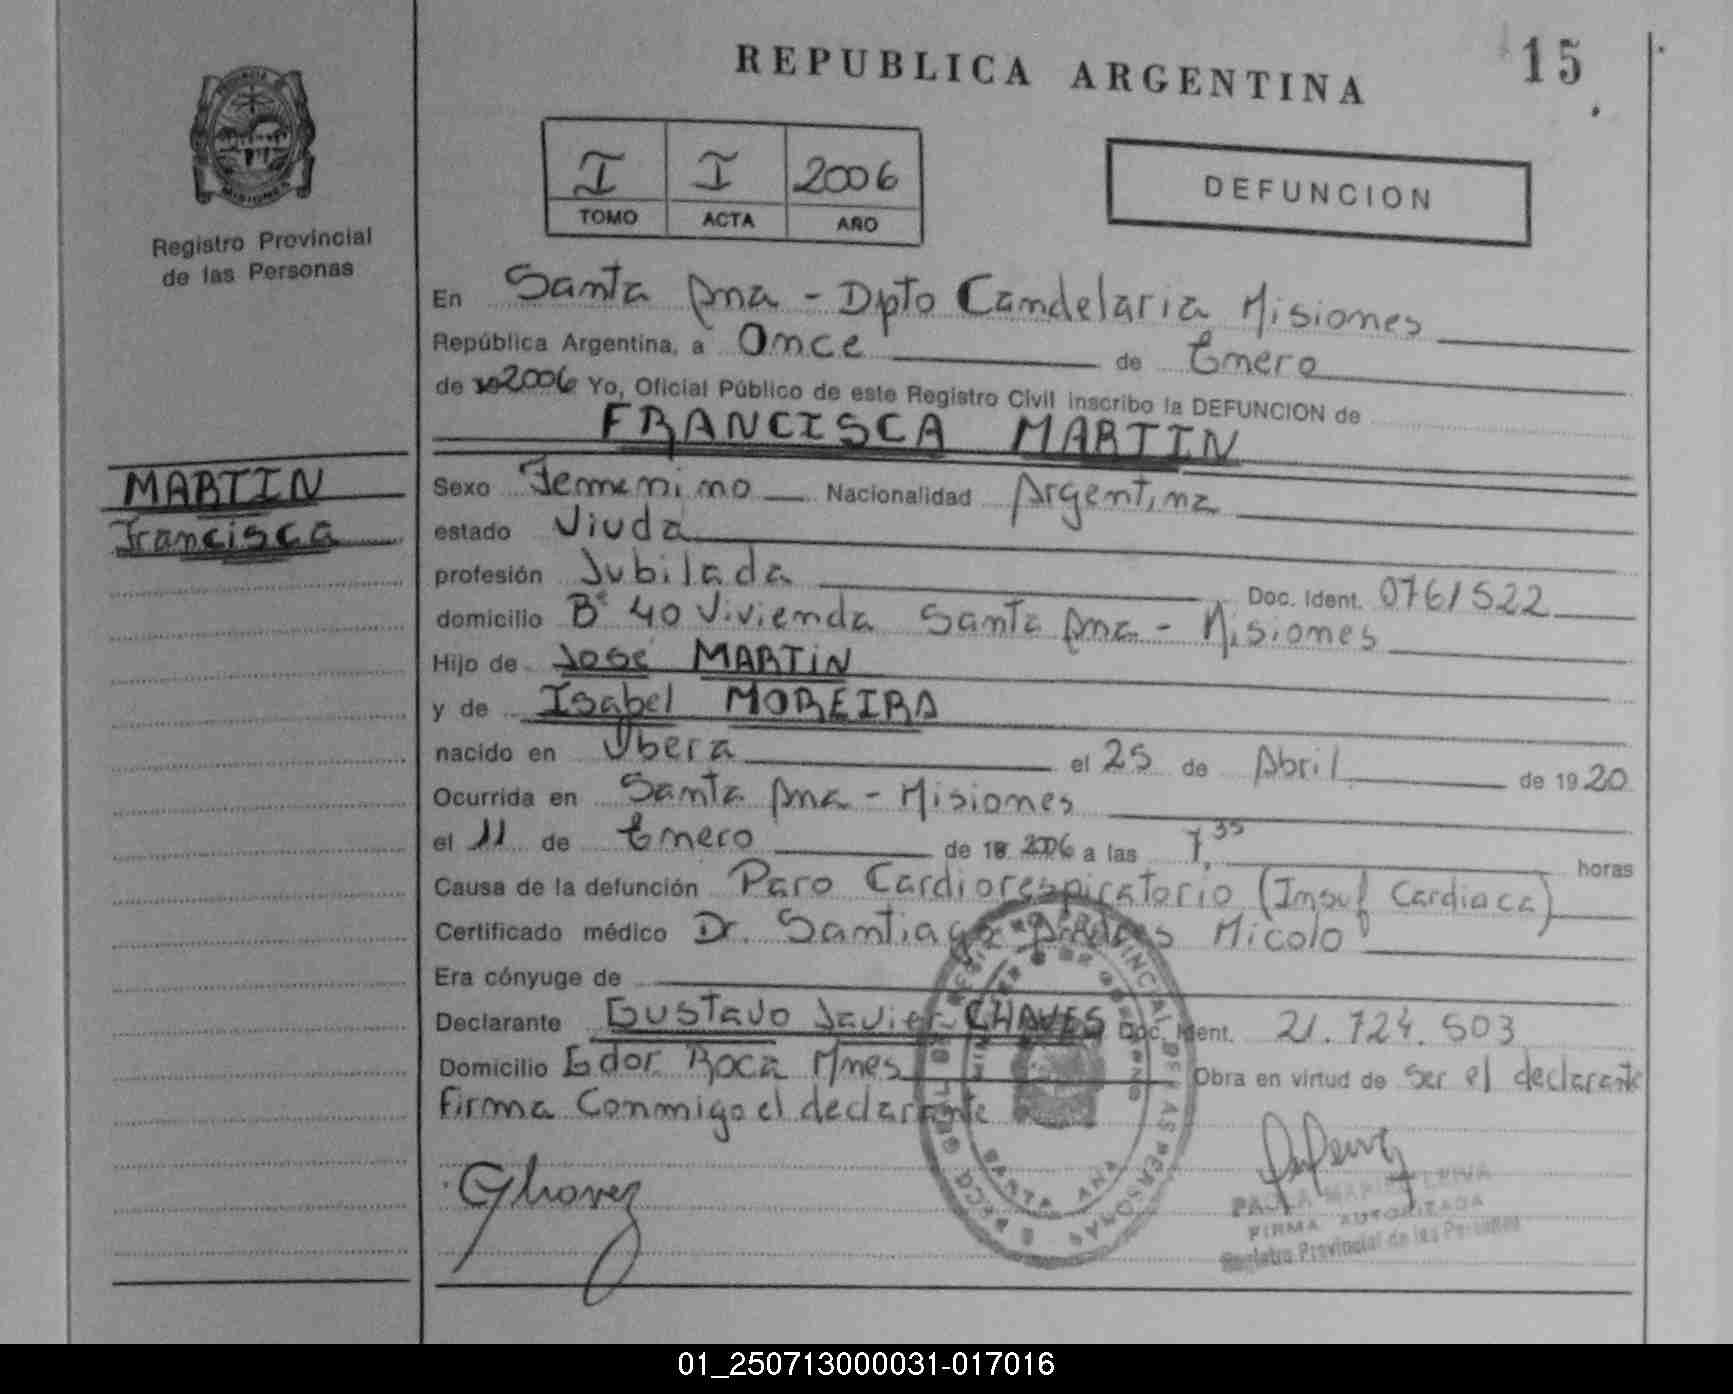 REPUBLICA ARGENTINA
15
I I 2006
TOMO ACTA AÑO
DEFUNCION
MISIONES
Registro Provincial
de las Personas
En Santa Ana - Dpto Candelaria Misiones
República Argentina, a Once de Enero
de 2006 Yo, Oficial Público de este Registro Civil inscribo la DEFUNCION de
FRANCISCA MARTIN
MARTIN
Francisca
Sexo Femenino Nacionalidad Argentina
estado Viuda
profesión Jubilada Doc. Ident. 0761522
domicilio Bº 40 Vivienda Santa Ana - Misiones
Hijo de José MARTIN
y de Isabel MOREIRA
nacido en Obera el 25 de Abril de 1920
Ocurrida en Santa Ana - Misiones
el 11 de Enero de 2006 a las 7,35 horas
Causa de la defunción Paro Cardiorespiratorio (Insuf Cardiaca)
Certificado médico Dr. Santiago Micolo
Era cónyuge de
Declarante Gustavo Javier CHAVES Doc. Ident. 21.724.503
Domicilio Gdor. Roca Mnes Obra en virtud de ser el declarante
firma Conmigo el declarante
GChavez
SANTA ANA
PAOLA MARIA LEIVA
FIRMA AUTORIZADA
Registro Provincial de las Personas
01_250713000031-017016